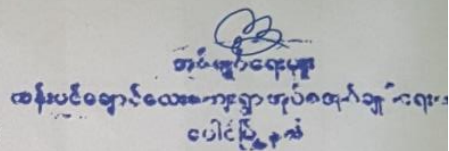 အုပ်ချုပ်ရေးမှူး
ထန်းပင်ချောင်လေးကျေးရွာအုပ်စုအုပ်ချုပ်ရေး
ပေါင်မြို့နယ်